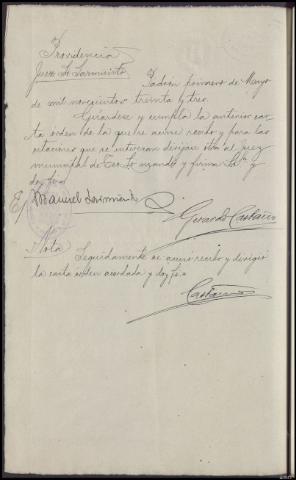 Providencia
Juez Sr Sarmiento
Padron primero de Mayo
de mil novecientos treinta y tres.
Guardese y cumpla la anterior car
ta orden de la que se acuse recibo y para las
citaciones que se interesan dirijase otra al juez
municipal de Teo Lo mando y firma Sª y
doy fe
E/ Manuel Sarmiento
Gerardo Castaño
Nota
Seguidamente se acusó recibo y dirigió
la carta orden acordada y doy fe.
Castaño